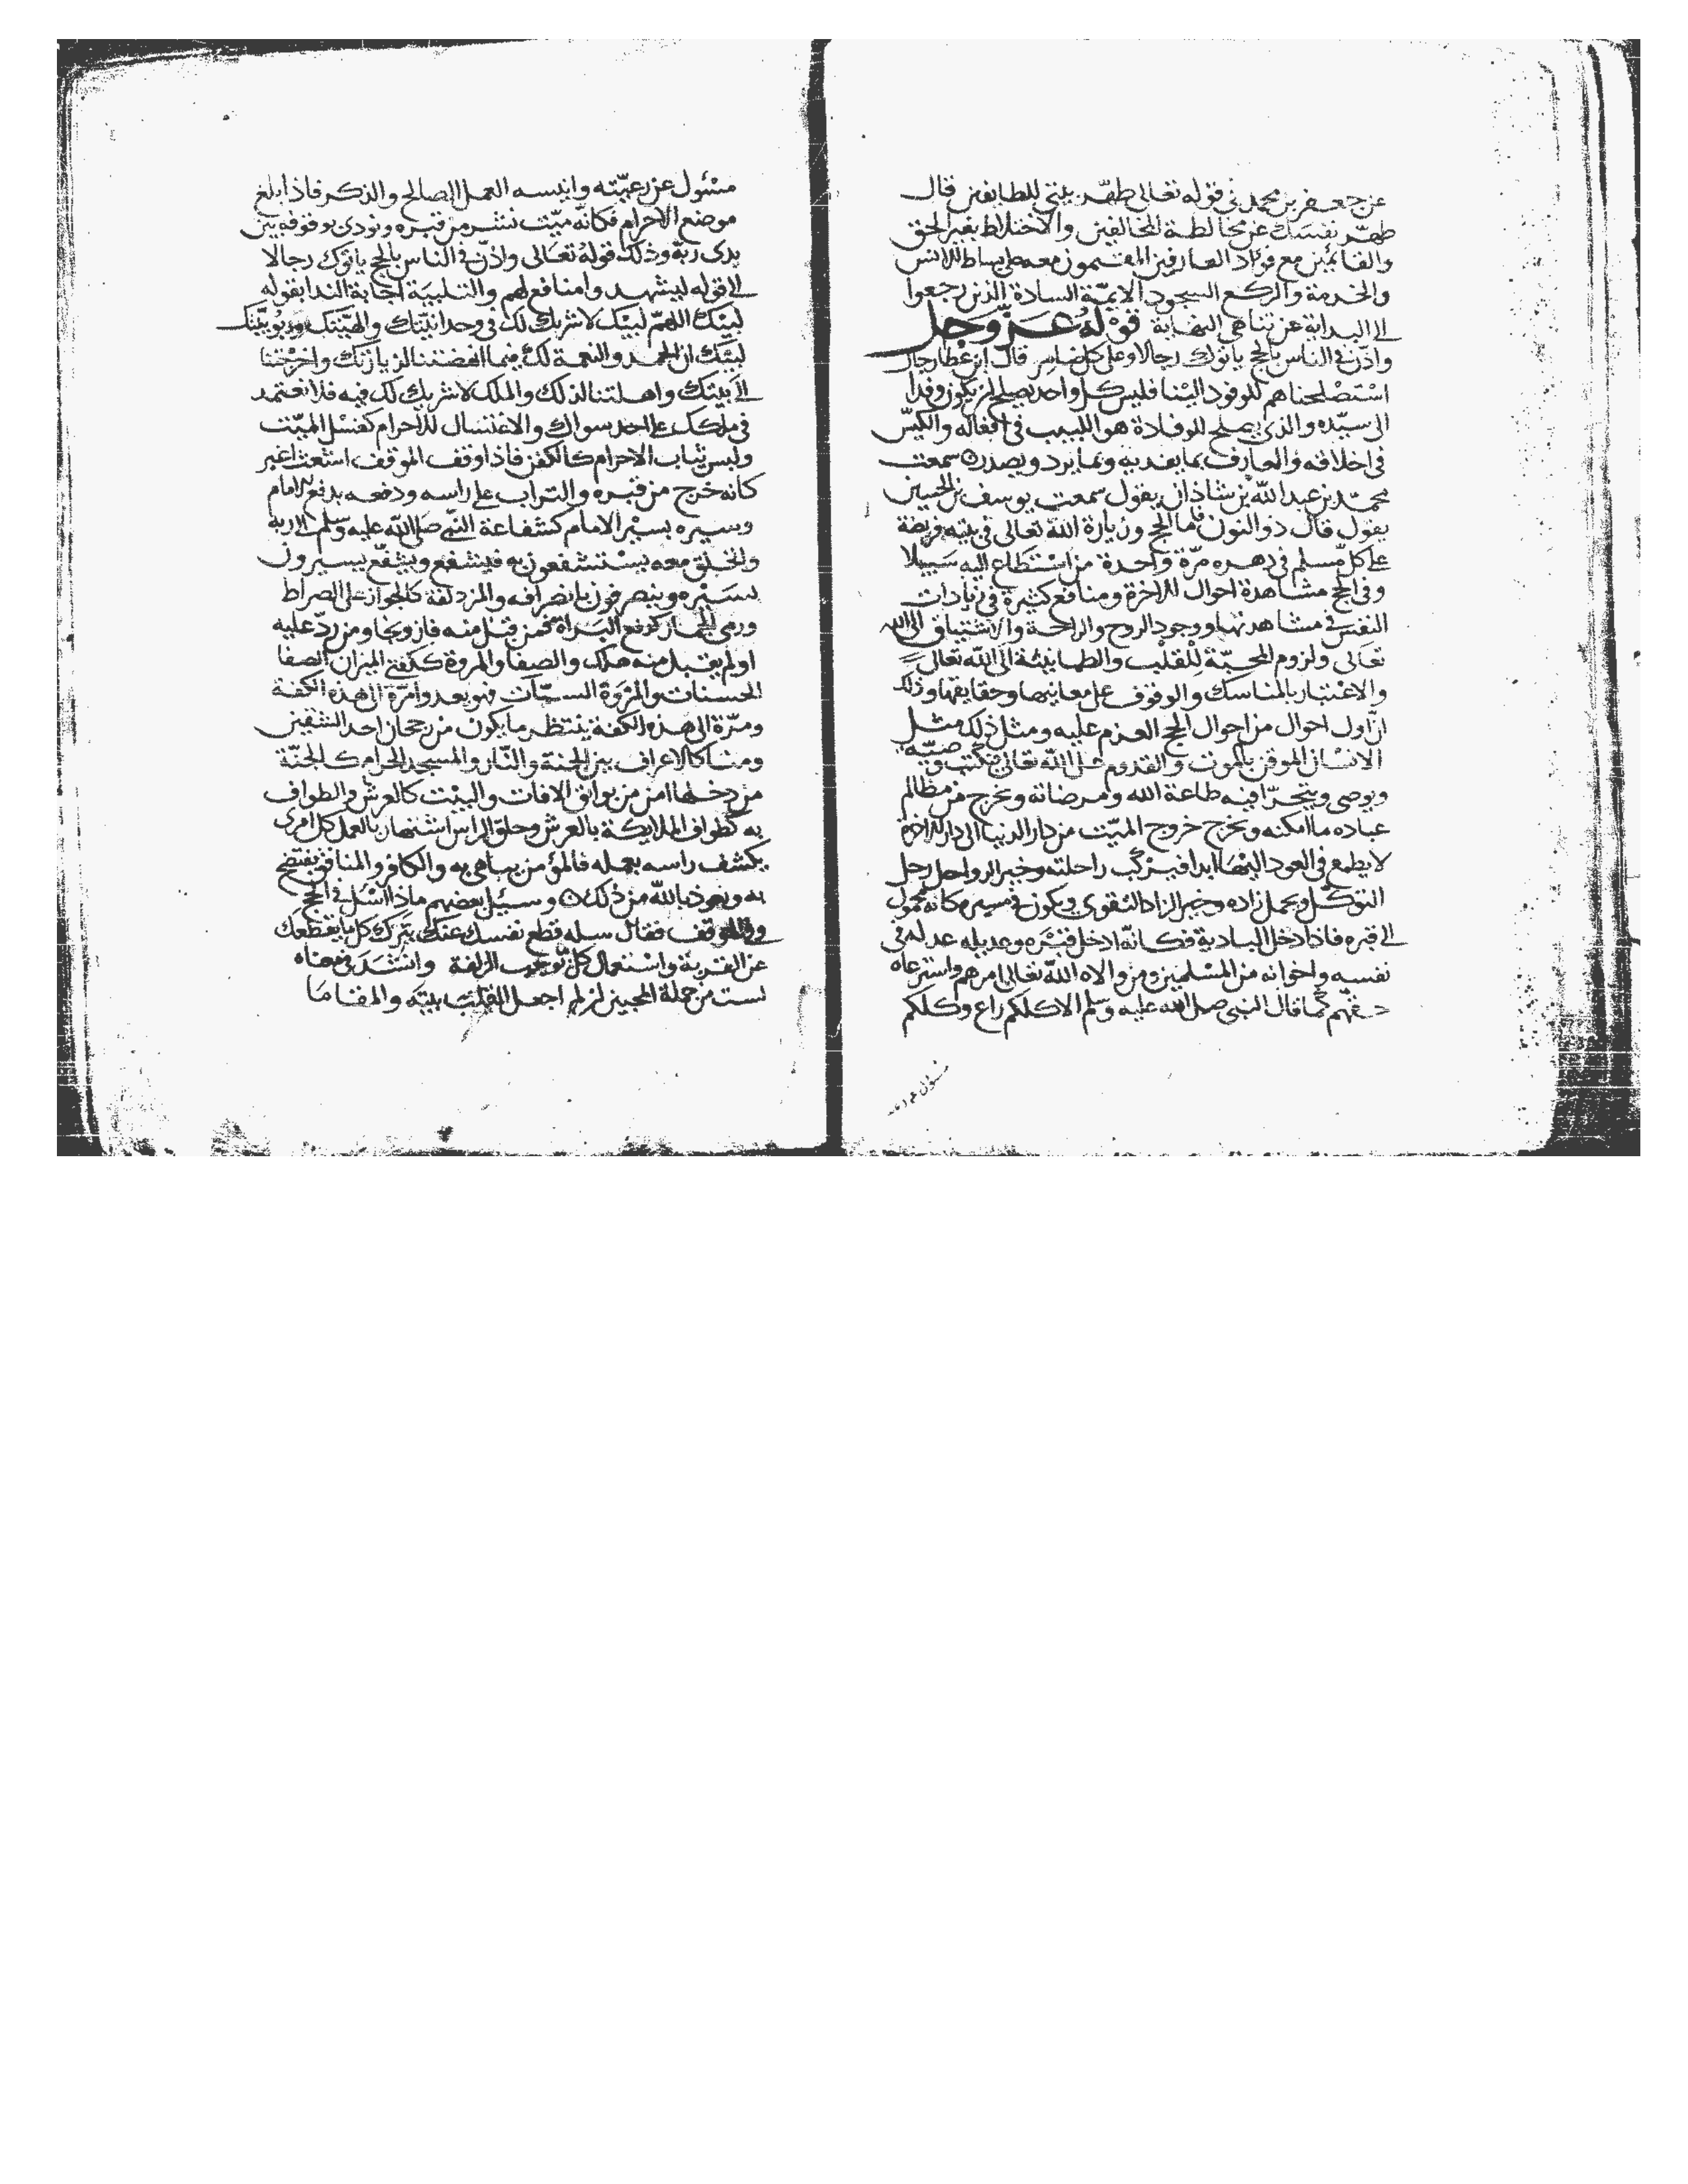 عن جعفر بن محمد في قوله تعالى طهّر بيتي للطايفين قال
طهّر نفسك عن مخالطة المخالفين والاختلاط بغير الحق
والقائمين مع فواد العارفين المقيمون معه على بساط الانس
والخدمة والركع السجود الايمّة السادة الذين رجعوا
الى البداية عن تناهى النهاية قوله عزّ وجل
واذّن في الناس بالحج ياتوك رجالا وعلى كل ضامر قال ابن عطا رجال
استصلحناهم للوفود الينا فليس كل واحد يصلح لان يكون وفدا
الى سيّده والذي يصلح للوفادة هو اللبيب في افعاله والكيّس
في اخلاقه والعارف بما يفد به وبما يرد ويصدر سمعت
محمّد بن عبد الله بن شاذان يقول سمعت يوسف بن الحسين
يقول قال ذو النون فاما الحج وزيارة الله تعالى في بيته فريضة
على كل مسلم في دهره مرّة واحدة من استطاع اليه سبيلا
وفي الحج مشاهدة احوال الاخرة ومنافع كثيرة في زيادات
النفس في مشاهدتها ووجود الروح والراحة والاشتياق الى الله
تعالى ولزوم المحبّة للقلب والطمانينة الى الله تعالى
والاعتبار بالمناسك والوقوف على معانيها وحقايقها وذلك
انّ اول احوال من احوال الحج العزم عليه ومثل ذلك مثل
الانسان الموقن بالموت والقدوم على الله تعالى فيكتب وصيّته
ويوصى ويتحرّا فيه طاعة الله ومرضاته ويخرج من مظالم
عباده ما امكنه ويخرج خروج الميّت من دار الدنيا الى دار الاخرة
لا يطمع في العود اليها ابدا فيركب راحلته وخير الرواحل رحل
التوكّل ويحمل زاده وخير الزاد التقوى ويكون في مسيره كانه محمول
الى قبره فاذا دخل البادية فكانّه ادخل قبره وعديله عدله في
نفسه واخوانه من المسلمين ومن والاه الله تعالى امرهم واسترعاه
حقهم كما قال النبي صلى الله عليه وسلم الا كلكم راع وكلكم
مسئول عن رعيته
مسئول عن رعيّته وانيسه العمل الصالح والذكر فاذا بلغ
موضع الاحرام فكانّه ميّت نشر من قبره ونودى بوقوفه بين
يدى ربّه وذلك قوله تعالى واذّن في الناس بالحج ياتوك رجالا
الى قوله ليشهدوا منافع لهم والتلبية اجابة الندا بقوله
لبيّك اللهمّ لبيّك لا شريك لك في وحدانيّتك والهيّتك وربوبيّتك
لبيّك انّ الحمد والنعمة لك فيما انهضتنا لزيارتك واخرجتنا
الى بيتك واهلتنا لذلك والملك لا شريك لك فيه فلا نعتمد
في ملكك على احد سواك والاغتسال للاحرام كغسل الميّت
ولبس ثياب الاحرام كالكفن فاذا وقف الموقف اشعث اغبر
كانه خرج من قبره والتراب على راسه ودفعه بدفع الامام
وسيره بسير الامام كشفاعة النبي صلى الله عليه وسلم الى ربه
والخلق معه يستشفعون به فيشفع ويشفّع يسيرون
بسيره وينصرفون بانصرافه والمزدلفة كالجواز على الصراط
ورمى الجمار كوقع البراة فمن قبل منه فاز ونجا ومن ردّ عليه
او لم يقبل منه هلك والصفا والمروة ككفتي الميزان الصفا
الحسنات والمروة السيّات فهو يعدو امرّة الى هذه الكفة
ومرّة الى هذه الكفة ينتظر ما يكون من رجحان احد الشقين
ومنا كالاعراف بين الجنة والنّار والمسجد الحرام كالجنّة
من دخلها امن من بوائق الافات والبيت كالعرش والطواف
به كطواف الملايكة بالعرش وحلق الراس اشتهار بالعمل كل امرئ
يكشف راسه بعمله فالمؤمن يباهى به والكافر والمنافق يفتضح
به ونعوذ بالله من ذلك وسئل بعضهم ماذا السّل في الحج
والموقف فقال سبله قطع نفسك عنك بترك كل ما يقطعك
عن القربة واستعمال كل ما يوجب الزلفة وانشد في معناه
لست من جملة المحبين ان لم اجعل القلب بيته والمقاما